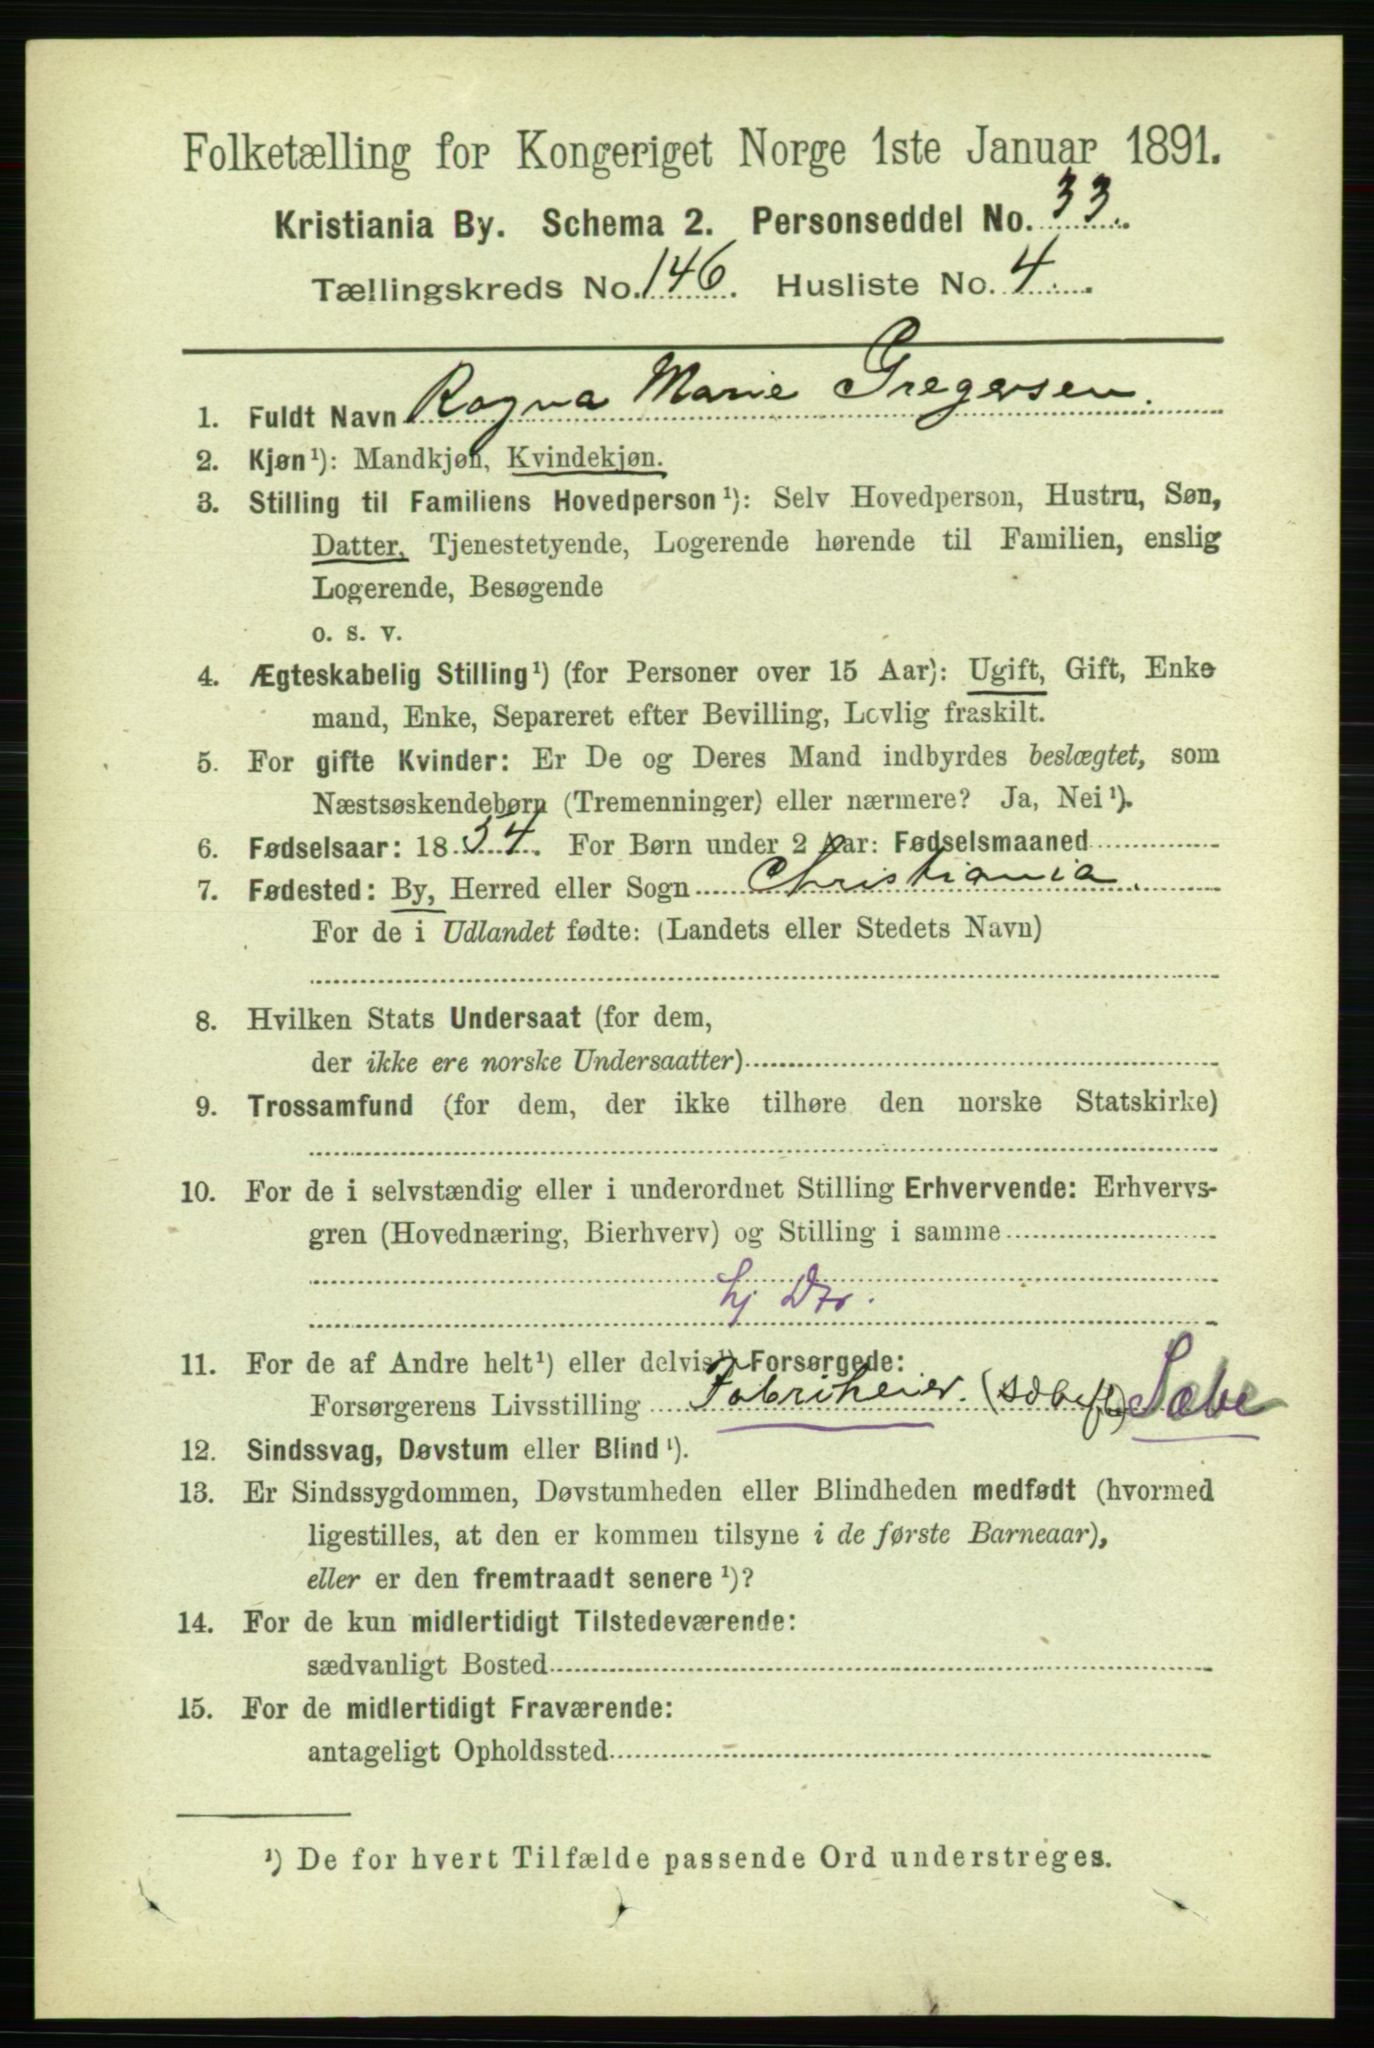 Folketælling for Kongeriget Norge 1ste Januar 1891.
Kristiania By. Schema 2. Personseddel No. 33.
Tællingskreds No. 146. Husliste No. 4.
1. Fuldt Navn Ragna Marie Gregersen.
2. Kjøn¹): Mandkjøn, Kvindekjøn.
3. Stilling til Familiens Hovedperson¹): Selv Hovedperson, Hustru, Søn,
Datter, Tjenestetyende, Logerende hørende til Familien, enslig
Logerende, Besøgende
o. s. v.
4. Ægteskabelig Stilling¹) (for Personer over 15 Aar): Ugift, Gift, Enke
mand, Enke, Separeret efter Bevilling, Lovlig fraskilt.
5. For gifte Kvinder: Er De og Deres Mand indbyrdes beslægtet, som
Næstsøskendebørn (Tremenninger) eller nærmere? Ja, Nei¹).
6. Fødselsaar: 1834. For Børn under 2 Aar: Fødselsmaaned
7. Fødested: By, Herred eller Sogn Christiania.
For de i Udlandet fødte: (Landets eller Stedets Navn)
8. Hvilken Stats Undersaat (for dem,
der ikke ere norske Undersaatter)
9. Trossamfund (for dem, der ikke tilhøre den norske Statskirke)
10. For de i selvstændig eller i underordnet Stilling Erhvervende: Erhvervs-
gren (Hovednæring, Bierhverv) og Stilling i samme
hj Dtr.
11. For de af Andre helt¹) eller delvis¹) Forsørgede:
Forsørgerens Livsstilling Fabrikeier. Sæbe
12. Sindssvag, Døvstum eller Blind¹).
13. Er Sindssygdommen, Døvstumheden eller Blindheden medfødt (hvormed
ligestilles, at den er kommen tilsyne i de første Barneaar),
eller er den fremtraadt senere¹)?
14. For de kun midlertidigt Tilstedeværende:
sædvanligt Bosted
15. For de midlertidigt Fraværende:
antageligt Opholdssted
¹) De for hvert Tilfælde passende Ord understreges.